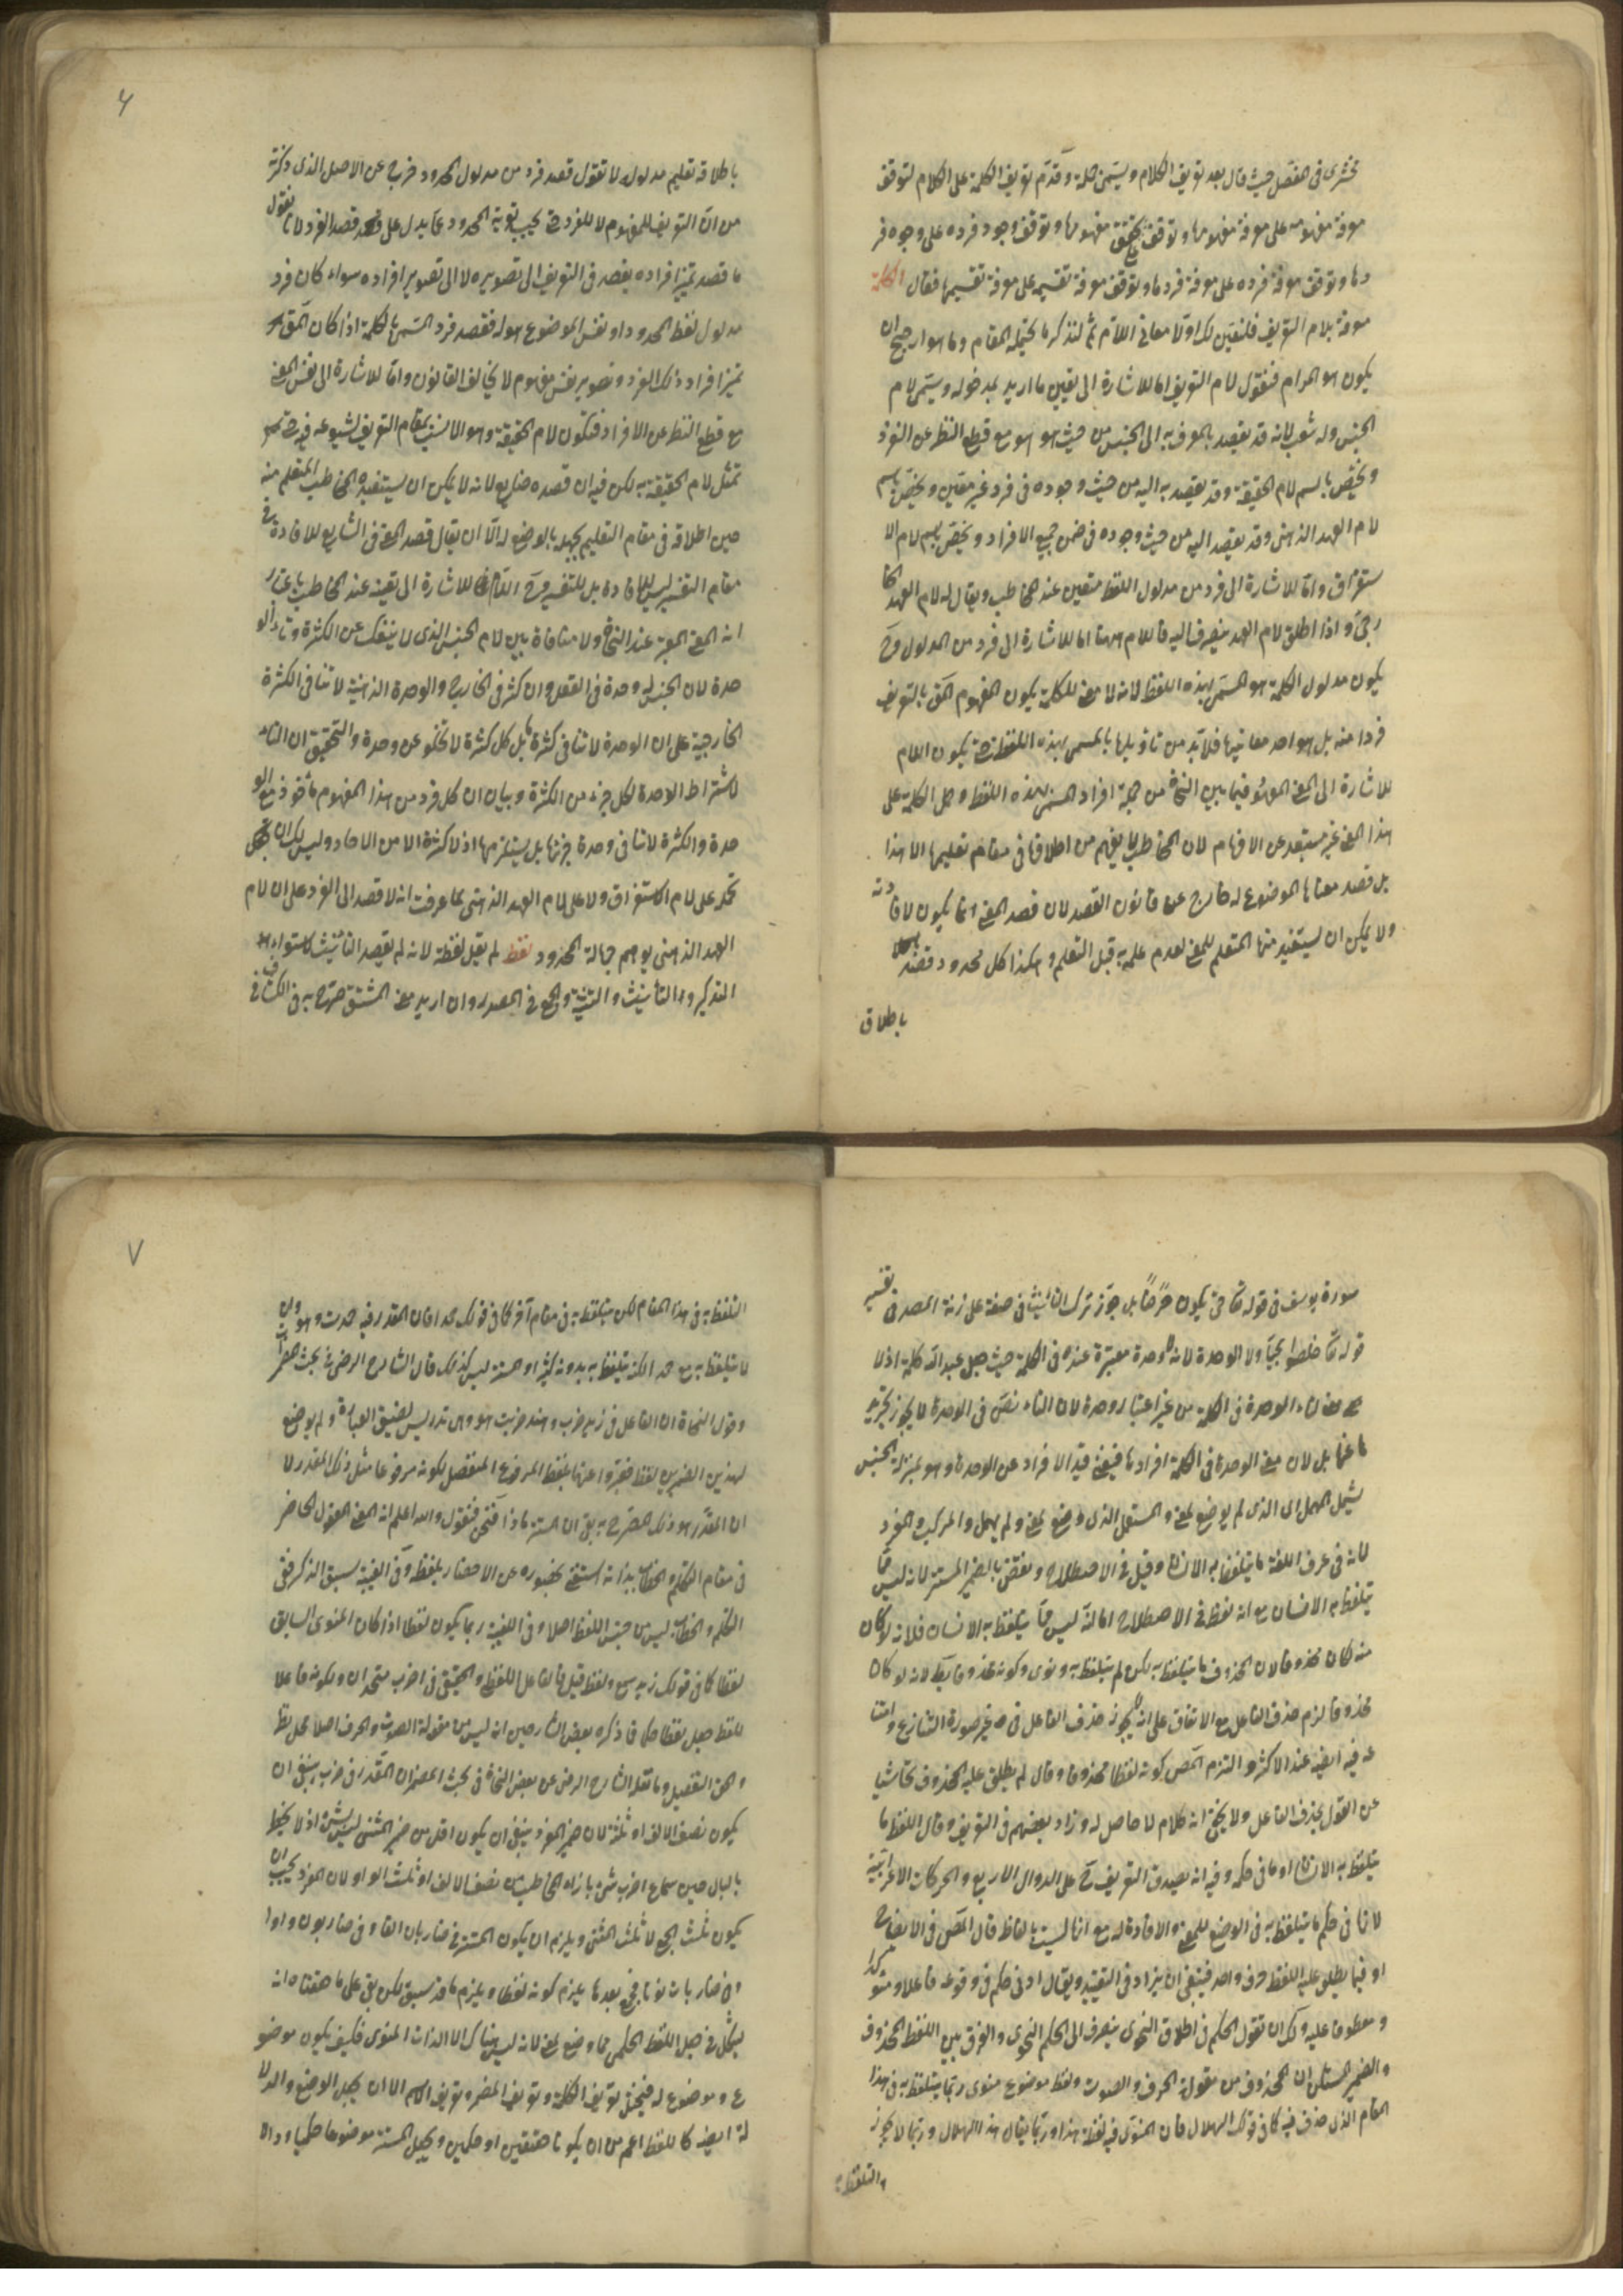 مخشرى فى المفصل حيث قال بعد تعريف الكلام ويسمى جملة وقدم تعريف الكلمة على الكلام لتوقف
معرفة مفهومه على معرفة مفهومها وتوقف تحقق مفهومها وتوقف وجود فرده على وجود فر
دها وتوقف معرفة فرده على معرفة فردها وتوقف معرفة تقسيمه على معرفة تقسيمها فقال الكلمة
معرفة بلام التعريف فلنعين لك اولا معانى اللام ثم لنذكر ما يحتمله المقام وما هو ارجح ان
يكون هو المرام فنقول لام التعريف اما للاشارة الى تعيين ما اريد بمدخوله ويسمى لام
الجنس وله شعب لانه قد يقصد بالمعرف به الى الجنس من حيث هو هو مع قطع النظر عن الفرد
ويختص باسم لام الحقيقة وقد يقصد به اليه من حيث وجوده فى فرد غير معين ويختص باسم
لام العهد الذهنى وقد يقصد اليه من حيث وجوده فى ضمن جميع الافراد ويختص باسم لام الا
ستغراق واما للاشارة الى فرد من مدلول اللفظ متعين عند المخاطب ويقال له لام العهد الخا
رجى و اذا اطلق لام العهد ينصرف اليه فاللام ههنا اما للاشارة الى فرد من المدلول وح
يكون مدلول الكلمة هو المسمى بهذه اللفظ لانه لا معنى للكلمة يكون المفهوم المعرف بالتعريف
فردا منه بل هو احد معانيها فلابد من تاويلها بالمسمى بهذه اللفظة حتى يكون اللام
للاشارة الى المعنى المعهود فيما بين النحاة من جملة افراد المسمى بهذه اللفظ وحمل الكلمة على
هذا المعنى غير مستبعد عن الافهام لان المخاطب لا يفهم من اطلاقها فى مقام تعليمها الا هذا
بل قصد معناها الموضوع له خارج عن قانون القصد لان قصد المعنى انما يكون لافادته
ولا يمكن ان يستفيد منها المتعلم المعنى لعدم علمه به قبل التعلم وهكذا كل محدود قصد
باطلاق
باطلاقه تعليم مدلوله لا تقول قصد فرد من مدلول المحدود خرج عن الاصل الذى ذكرته
من ان التعريف للمفهوم لا للفرد حتى يجب تعرية المحدود عما يدل على قصد الفرد لانا نقول
ما قصد تميز افراده يقصد فى التعريف الى تصويره لا الى تصوير افراده سواء كان فرد
مدلول لفظ المحدود او نفس الموضوع هو له فقصد فرد المسمى بالكلمة اذا كان المق
تميز افراد ذلك الفرد وتصوير نفس مفهوم لا يخالف القانون واما للاشارة الى نفس المعنى
مع قطع النظر عن الافراد فتكون لام الحقيقة وهو الانسب بمقام التعريف لشيوعه فيه حتى
تمثل لام الحقيقة به لكن فيه ان قصده ضايع لانه لا يمكن ان يستفيده المخاطب المتعلم منه
حين اطلاقه فى مقام التعليم لجهله بالوضع له الا ان يقال قصد المعنى الشايع للافادة فى
مقام التفسير ليس للافادة بل للتفسير و اللام للاشارة الى تعينه عند المخاطب باعتبار
انه المعنى المعتبر عند النحاة ولا منافاة بين لام الجنس الذى لا ينفك عن الكثرة وتاء الو
حدة لان الجنس له وحدة فى العقل وان كثر فى الخارج والوحدة الذهنية لا تنافى الكثرة
الخارجية على ان الوحدة لا تنافى كثرة بل كل كثرة لا تخلو عن وحدة والتحقيق ان التاء
لاشتراط الوحدة لكل جزء من الكثرة وبيان ان كل فرد من هذا المفهوم ماخوذ مع الو
حدة والكثرة لا تنافى وحدة جزئها بل يستلزمها اذ لا كثرة الا من الاحاد وليس لك ان تحمل
على لام الاستغراق ولا على لام العهد الذهنى لما عرفت انه لا قصد الى الفرد على ان لام
العهد الذهنى يوهم جهالة المحدود لفظ لم يقل لفظة لانه لم يقصد التانيث لاستواء
التذكير والتأنيث والتثنية والجمع فى المصدر وان اريد معنى المشتق صرح به فى الكشاف
سورة يوسف فى قوله تعالى حتى يكون حرضا بل جوز ترك التانيث فى صفة على زنة المصدر فى تفسير
قوله تعالى خلصوا نجيا ولا الوحدة لانه لا وحدة معتبرة عنده فى الكلمة حيث جعل عبد الله كلمة اذ لا
معنى لتاء الوحدة فى الكلمة من غير اعتبار وحدة لان التاء نص فى الوحدة لا يجوز تجريد
ها عنها بل لان معنى الوحدة فى الكلمة افرادها فيغنى قيد الافراد عن الوحدة وهو بمنزلة الجنس
يشمل المهمل اى الذى لم يوضع لمعنى والمستعمل الذى وضع لمعنى ولم يهمل والمركب والمفرد
لانه فى عرف اللغة ما يتلفظ به الانسان وقيل فى الاصطلاح ونقض بالضمير المستتر لانه ليس مما
يتلفظ به الانسان مع انه لفظ فى الاصطلاح اما انه ليس مما يتلفظ به الانسان فلانه لو كان
منه كان محذوفا لان المحذوف ما يتلفظ به لكن لم يتلفظ به ونوى وكونه محذوفا بط لانه لو كان
محذوفا لزم حذف الفاعل مع الاتفاق على انه لا يجوز حذف الفاعل فى غير صورة التنازع وامتنا
عه فيه ايضا عند الاكثر والتزم المص كونه لفظا محذوفا وقال لم يطلق عليه المحذوف تحاشيا
عن القول بحذف الفاعل ولا يخفى انه كلام لا حاصل له وزاد بعضهم فى التعريف وقال اللفظ ما
يتلفظ به الانسان او ما فى حكمه وفيه انه يصدق التعريف ح على الدوال الاربع والحركات الاعرابية
لانها فى حكم ما يتلفظ به فى الوضع للمعنى والافادة له مع انها ليست بالفاظ قال المص فى الايضاح
او فيما يطلق عليه اللفظ حرف واحد فينبغى ان يزاد فى التقييد ويقال او فى حكمه فى وقوعه فاعلا ومؤكدا
ومعطوفا عليه ولك ان تقول الحكم فى اطلاق النحوى ينصرف الى الحكم النحوى والفرق بين اللفظ المحذوف
والضمير المستكن ان المحذوف من مقولة الحرف والصوت ولفظ موضوع منوى ربما يتلفظ به فى هذا
المقام الذى حذف فيه كما فى قولك الهلال فان المنوى فيه لفظ هذا وربما يقال هذا الهلال وربما لا يجوز
التلفظ به
التلفظ به فى هذا المقام لكن يتلفظ به فى مقام آخر كما فى قولك حمدا فان المقدر فيه حمدت وهو وان
لا يتلفظ به مع حمدا لكنه يتلفظ به بدونه كثيرا والمستتر ليس كذلك قال الشارح الرضى فى بحث المضمرات
وقول النحاة ان الفاعل فى زيد ضرب وهند ضربت هو وهى تدريس لضيق العبارة ولم يوضع
لهذين الضميرين لفظ فعبروا عنهما بلفظ المرفوع المنفصل لكونه مرفوعا مثل ذلك المقدر لا
ان المقدر هو ذلك المصرح به بقى ان المستتر ماذا فنقول والله اعلم انه المعنى المعقول الحاضر
فى مقام التكلم والخطاب بذاته استغنى بحضوره عن الاحضار بلفظ وفى الغيبة لسبق الذكر ففى
التكلم والخطاب ليس من جنس اللفظ اصلا وفى الغيبة ربما يكون لفظا اذا كان المنوى السابق
لفظا كما فى قولك زيد ولفظ قيل فالفاعل اللفظى والحقيقى فى اضرب متحدان ولكونه فاعلا
للفظ جعل لفظا حكما فما ذكره بعض الشارحين انه ليس من مقولة الصوت والحرف اصلا محل نظر
وهن التفصيل وما نقله الشارح الرضى عن بعض النحاة فى بحث المضمر ان المقدر فى ضرب ينبغى ان
يكون نصف الالف او ثلثه لان ضمير المفرد ينبغى ان يكون اقل من ضمير المثنى ليس بشئ اذ لا يخطر
بالبال حين سماع اضرب شئ بازاء المخاطب من نصف الالف او ثلث الواو ولان المفرد يجب ان
يكون ثلث الجمع لا ثلث المثنى ويلزم ان يكون المستتر فى ضاربان الفا وفى ضاربون واوا
وفى ضاربات نونا فبعدها يلزم كونه لفظا ويلزم ما قد سبق لكن بقى على ما حققناه انه
يشكل جعل اللفظ الحكمى مما وضع لمعنى لانه ليس هناك الا الذات المنوى فكيف يكون موضو
ع وموضوع له فيختل تعريف الكلمة وتعريف المضمر وتعريف الاسم الا ان يجعل الوضع والدلا
لة ايضا كاللفظ اعم من ان يكونا حقيقين او حكمين ويجعل المستتر موضوعا حكميا ودالا
٦
٧